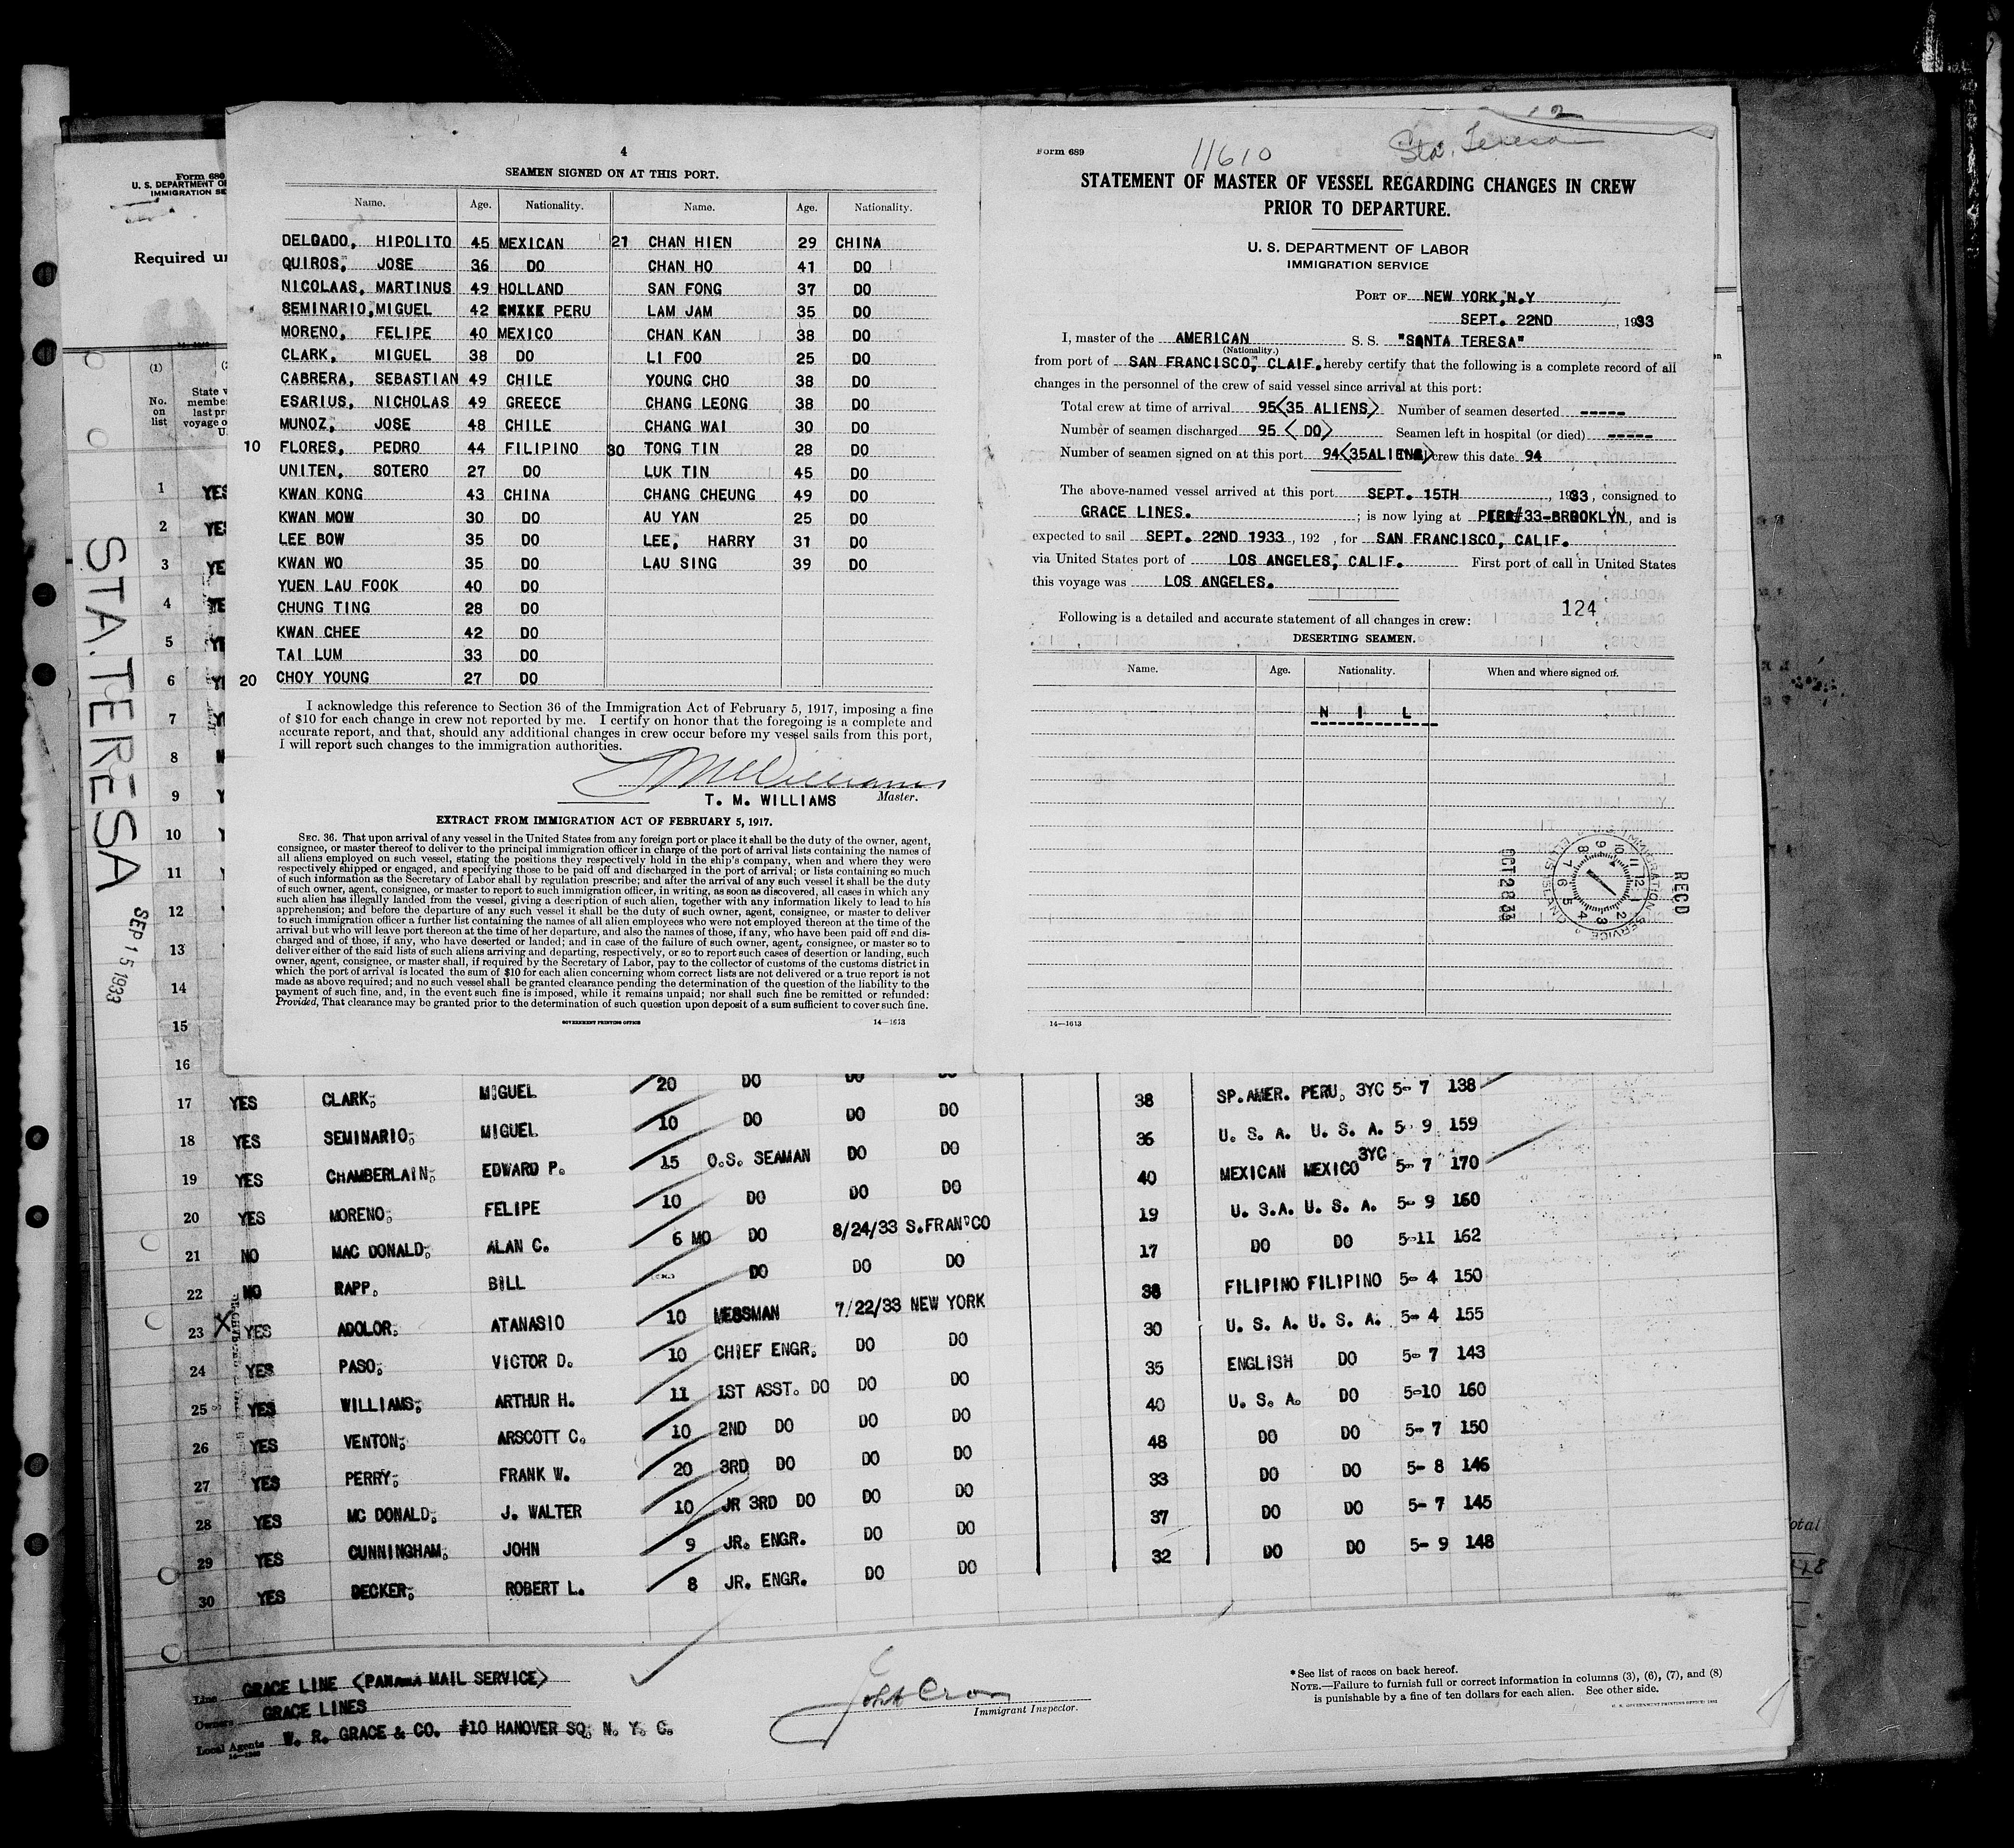 4
SEAMEN SIGNED ON AT THIS PORT.
Name. Age. Nationality. Name. Age. Nationality.
DELGADO, HIPOLITO 45 MEXICAN 21 CHAN HIEN 29 CHINA
QUIROS, JOSE 36 DO CHAN HO 41 DO
NICOLAAS, MARTINUS 49 HOLLAND SAN FONG 37 DO
SEMINARIO, MIGUEL 42 PERU LAM JAM 35 DO
MORENO, FELIPE 40 MEXICO CHAN KAN 38 DO
CLARK, MIGUEL 38 DO LI FOO 25 DO
CABRERA, SEBASTIAN 49 CHILE YOUNG CHO 38 DO
ESARIUS, NICHOLAS 49 GREECE CHANG LEONG 38 DO
MUNOZ, JOSE 48 CHILE CHANG WAI 30 DO
10 FLORES, PEDRO 44 FILIPINO 30 TONG TIN 28 DO
UNITEN, SOTERO 27 DO LUK TIN 45 DO
KWAN KONG 43 CHINA CHANG CHEUNG 49 DO
KWAN MOW 30 DO AU YAN 25 DO
LEE BOW 35 DO LEE, HARRY 31 DO
KWAN WO 35 DO LAU SING 39 DO
YUEN LAU FOOK 40 DO
CHUNG TING 28 DO
KWAN CHEE 42 DO
TAI LUM 33 DO
20 CHOY YOUNG 27 DO
I acknowledge this reference to Section 36 of the Immigration Act of February 5, 1917, imposing a fine
of $10 for each change in crew not reported by me. I certify on honor that the foregoing is a complete and
accurate report, and that, should any additional changes in crew occur before my vessel sails from this port,
I will report such changes to the immigration authorities.
T M Williams
T. M. WILLIAMS Master.
EXTRACT FROM IMMIGRATION ACT OF FEBRUARY 5, 1917.
SEC. 36. That upon arrival of any vessel in the United States from any foreign port or place it shall be the duty of the owner, agent,
consignee, or master thereof to deliver to the principal immigration officer in charge of the port of arrival lists containing the names of
all aliens employed on such vessel, stating the positions they respectively hold in the ship's company, when and where they were
respectively shipped or engaged, and specifying those to be paid off and discharged in the port of arrival; or lists containing so much
of such information as the Secretary of Labor shall by regulation prescribe; and after the arrival of any such vessel it shall be the duty
of such owner, agent, consignee, or master to report to such immigration officer, in writing, as soon as discovered, all cases in which any
such alien has illegally landed from the vessel, giving a description of such alien, together with any information likely to lead to his
apprehension; and before the departure of any such vessel it shall be the duty of such owner, agent, consignee, or master to deliver
to such immigration officer a further list containing the names of all alien employees who were not employed thereon at the time of the
arrival but who will leave port thereon at the time of her departure, and also the names of those, if any, who have been paid off and dis-
charged and of those, if any, who have deserted or landed; and in case of the failure of such owner, agent, consignee, or master so to
deliver either of the said lists of such aliens arriving and departing, respectively, or so to report such cases of desertion or landing, such
owner, agent, consignee, or master shall, if required by the Secretary of Labor, pay to the collector of customs of the customs district in
which the port of arrival is located the sum of $10 for each alien concerning whom correct lists are not delivered or a true report is not
made as above required; and no such vessel shall be granted clearance pending the determination of the question of the liability to the
payment of such fine, and, in the event such fine is imposed, while it remains unpaid; nor shall such fine be remitted or refunded:
Provided, That clearance may be granted prior to the determination of such question upon deposit of a sum sufficient to cover such fine.
GOVERNMENT PRINTING OFFICE 14—1613
Form 689 11610 Sta. Teresa 2
STATEMENT OF MASTER OF VESSEL REGARDING CHANGES IN CREW
PRIOR TO DEPARTURE.
U. S. DEPARTMENT OF LABOR
IMMIGRATION SERVICE
PORT OF NEW YORK,N.Y
SEPT. 22ND , 1933
I, master of the AMERICAN S. S. "SANTA TERESA"
(Nationality.)
from port of SAN FRANCISCO, CLAIF. hereby certify that the following is a complete record of all
changes in the personnel of the crew of said vessel since arrival at this port:
Total crew at time of arrival 95<35 ALIENS> Number of seamen deserted -----
Number of seamen discharged 95 < DO> Seamen left in hospital (or died) -----
Number of seamen signed on at this port 94<35ALIENS> crew this date 94
The above-named vessel arrived at this port SEPT. 15TH , 1933, consigned to
GRACE LINES. ; is now lying at PIER#33-BROOKLYN, and is
expected to sail SEPT. 22ND 1933, 192 , for SAN FRANCISCO, CALIF.
via United States port of LOS ANGELES, CALIF. First port of call in United States
this voyage was LOS ANGELES.
124
Following is a detailed and accurate statement of all changes in crew:
DESERTING SEAMEN.
Name. Age. Nationality. When and where signed on.
N I L
REC'D
IMMIGRATION SERVICE
ELLIS ISLAND
OCT 28 33
14—1613
Form 680
U. S. DEPARTMENT OF
IMMIGRATION SE
Required un
(1)
No. on list
State w
member
last pr
voyage o
U.
STA. TERESA
SEP 15 1933
1 YES
2 YES
3 YE
4 YE
5 YE
6 YE
7 Y
8
9 Y
10
11
12
13
14
15
16
17 YES CLARK, MIGUEL 20 DO DO DO 38 SP.AMER. PERU, 3YC 5- 7 138
18 YES SEMINARIO, MIGUEL 10 DO DO DO 36 U. S. A. U. S. A. 5- 9 159
19 YES CHAMBERLAIN, EDWARD P. 15 O.S. SEAMAN DO DO 40 MEXICAN MEXICO 3YC 5- 7 170
20 YES MORENO, FELIPE 10 DO DO DO 19 U. S.A. U. S. A. 5- 9 160
21 NO MAC DONALD, ALAN C. 6 MO DO 8/24/33 S.FRAN'CO 17 DO DO 5-11 162
22 NO RAPP, BILL DO DO DO 38 FILIPINO FILIPINO 5- 4 150
23 X YES ADOLOR, ATANASIO 10 MESSMAN 7/22/33 NEW YORK 30 U. S. A. U. S. A. 5- 4 155
24 YES PASO, VICTOR D. 10 CHIEF ENGR. DO DO 35 ENGLISH DO 5- 7 143
25 YES WILLIAMS, ARTHUR H. 11 1ST ASST. DO DO DO 40 U. S. A. DO 5-10 160
26 YES VENTON, ARSCOTT C. 10 2ND DO DO DO 48 DO DO 5- 7 150
27 YES PERRY, FRANK W. 20 3RD DO DO DO 33 DO DO 5- 8 146
28 YES MC DONALD, J. WALTER 10 JR 3RD DO DO DO 37 DO DO 5- 7 145
29 YES CUNNINGHAM, JOHN 9 JR. ENGR. DO DO 32 DO DO 5- 9 148
30 YES DECKER, ROBERT L. 8 JR. ENGR. DO DO
Line GRACE LINE <PANAMA MAIL SERVICE>
Owners GRACE LINES
Local Agents W. R. GRACE & CO. #10 HANOVER SQ, N. Y. C.
Immigrant Inspector.
*See list of races on back hereof.
NOTE.—Failure to furnish full or correct information in columns (3), (6), (7), and (8)
is punishable by a fine of ten dollars for each alien. See other side.
otal